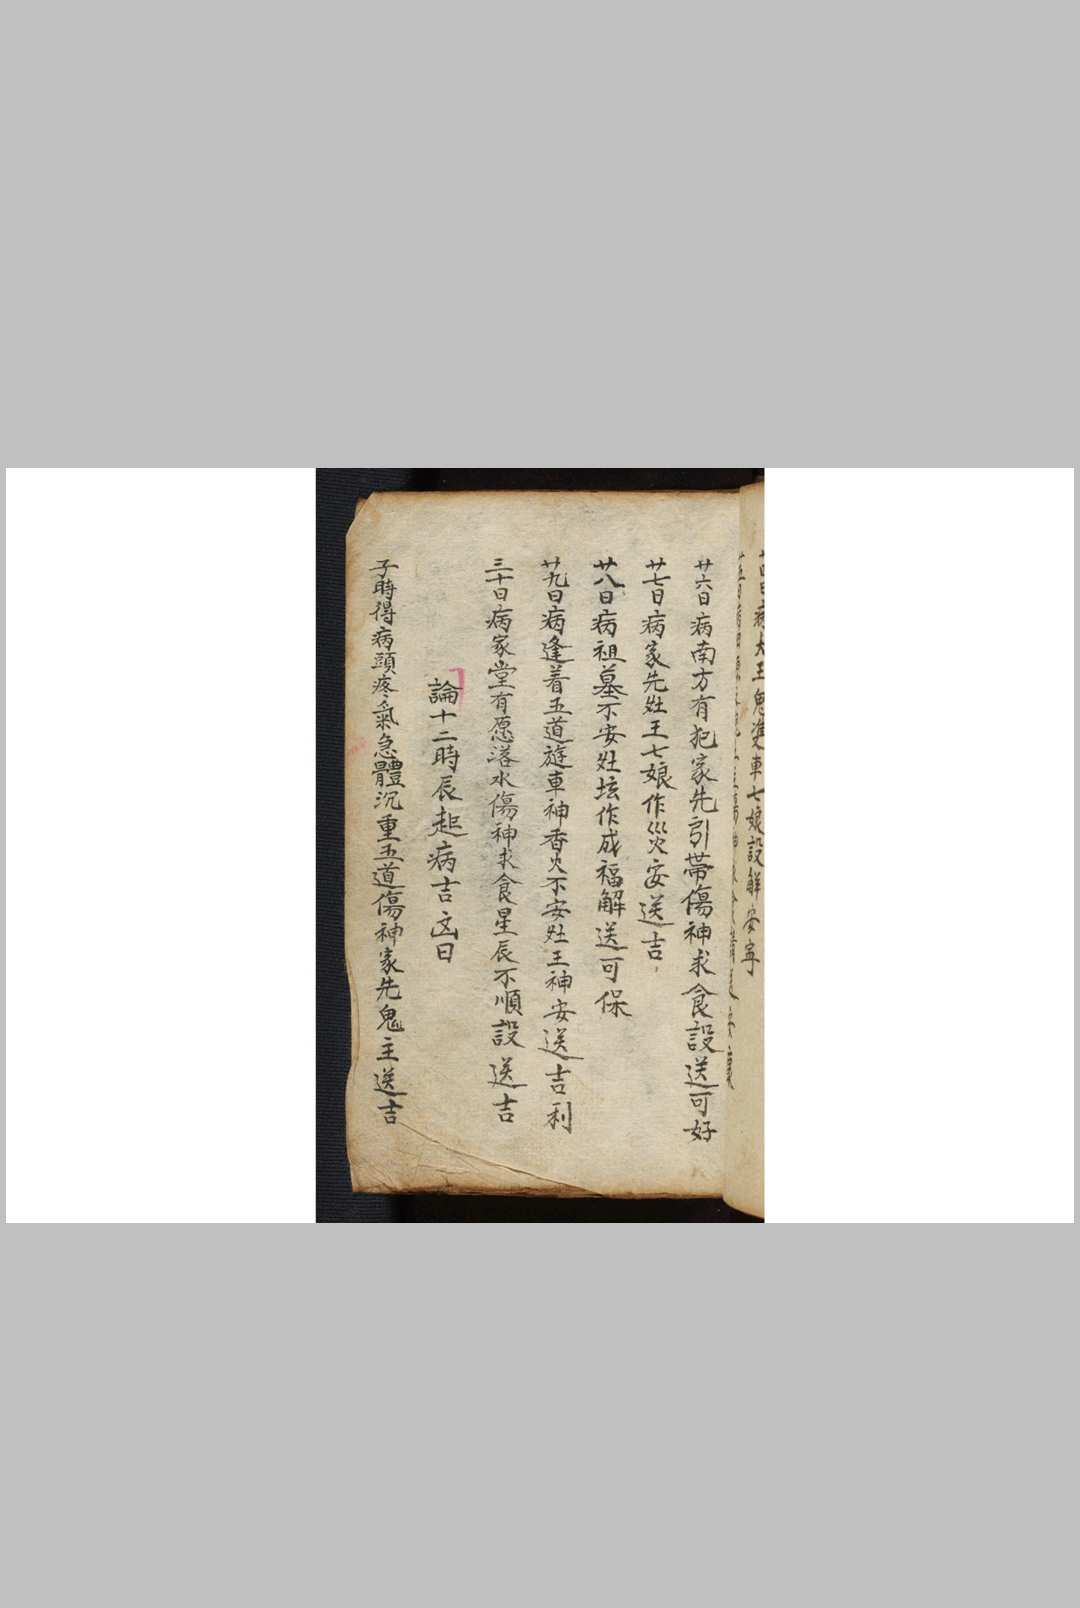 廿四日病大王鬼
車七娘設觧安寧
廿六日病南方有犯家先引帶傷神求食設送可好
廿七日病家先灶王七娘作災安送吉
廿八日病祖墓不安灶坛作成福觧送可保
廿九日病逢着五道遊車神香火不安灶王神安送吉利
三十日病家堂有愿落水傷神求食星辰不順設送吉
論十二時辰起病吉凶日
子時得病頭疼氣急體沉重五道傷神家先鬼主送吉